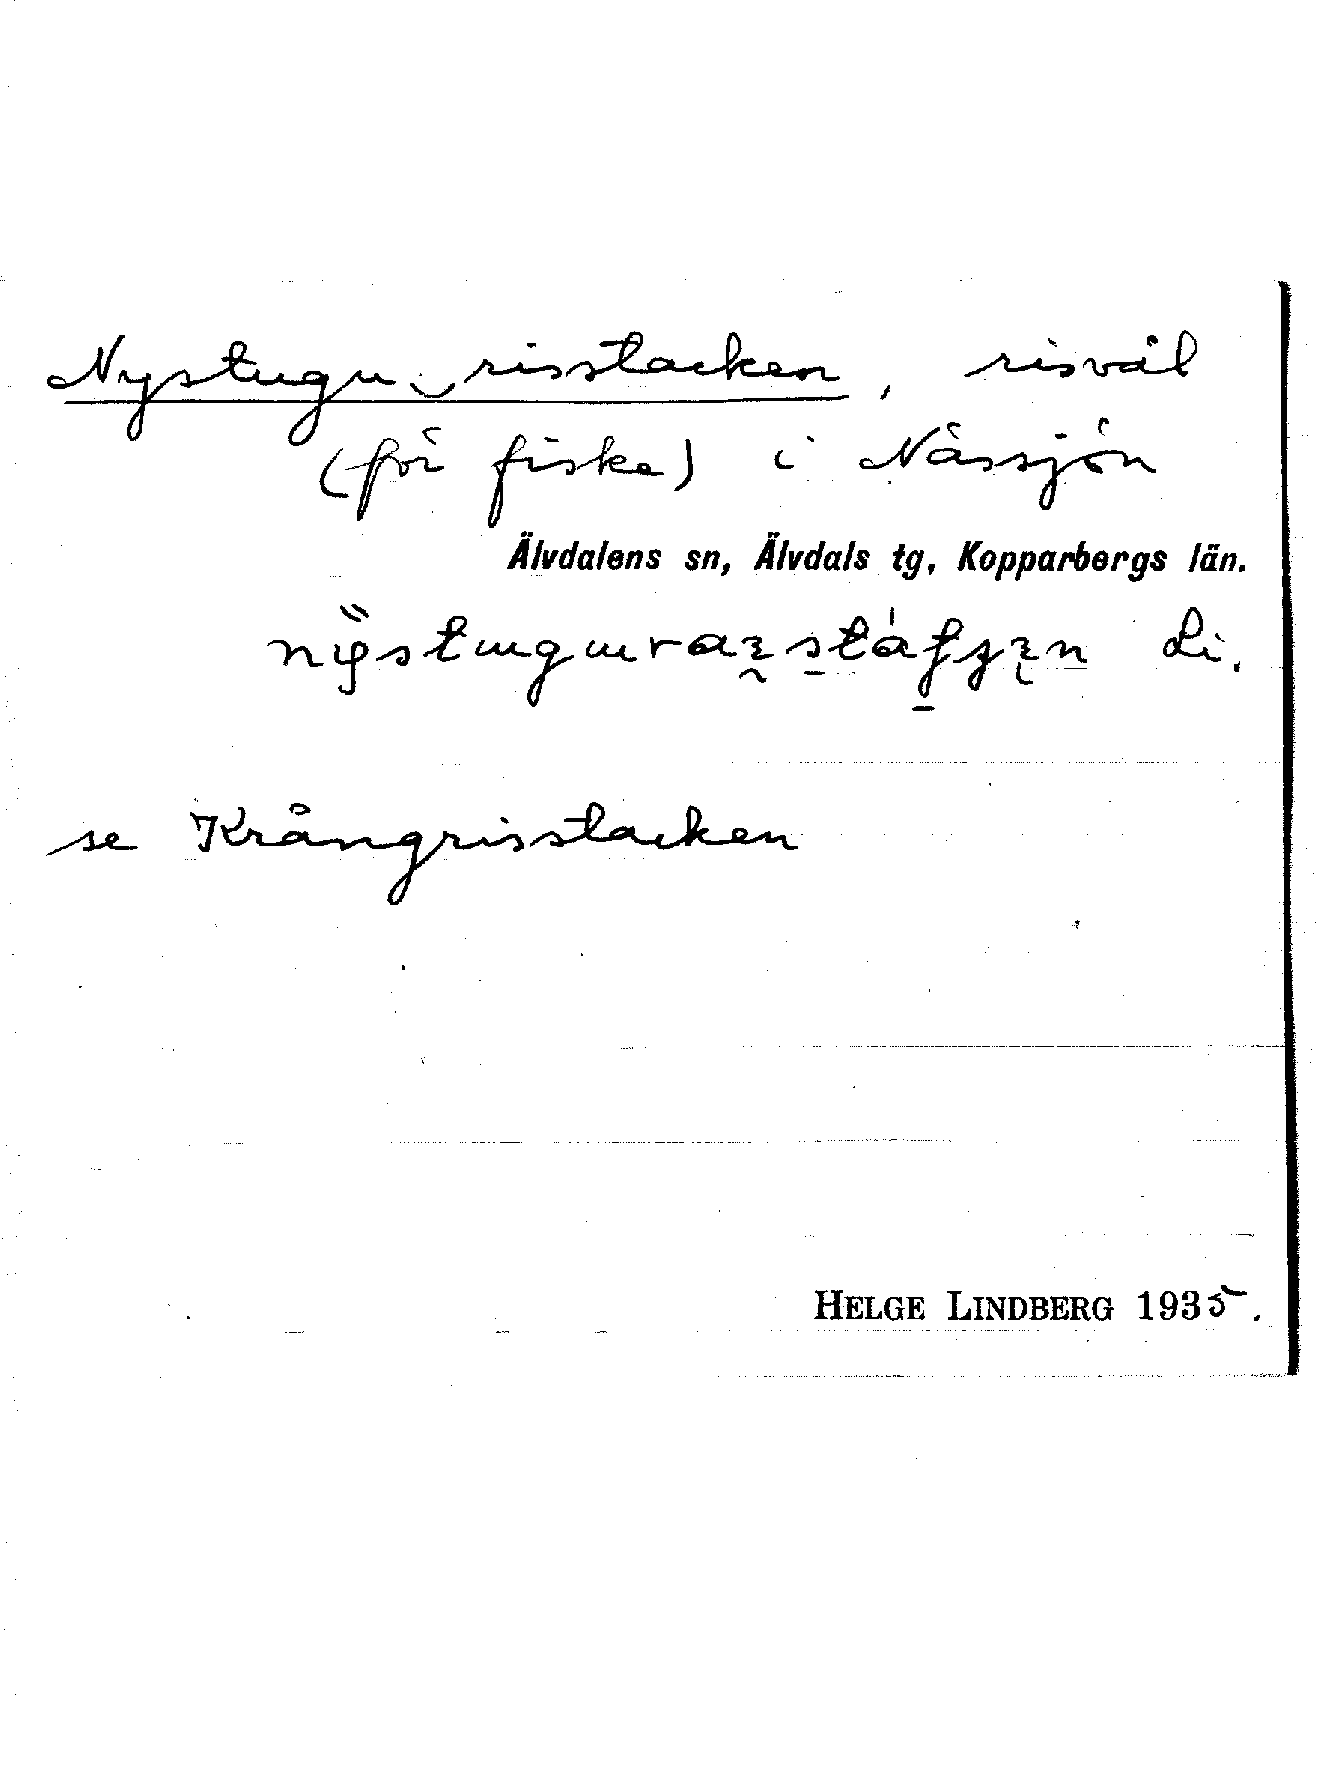 Nystugu‿risstacken, risvål
(för fiske) i Nässjön
Älvdalens sn, Älvdals tg, Kopparbergs län.
Li.
se Krångrisstacken
HELGE LINDBERG 1935.